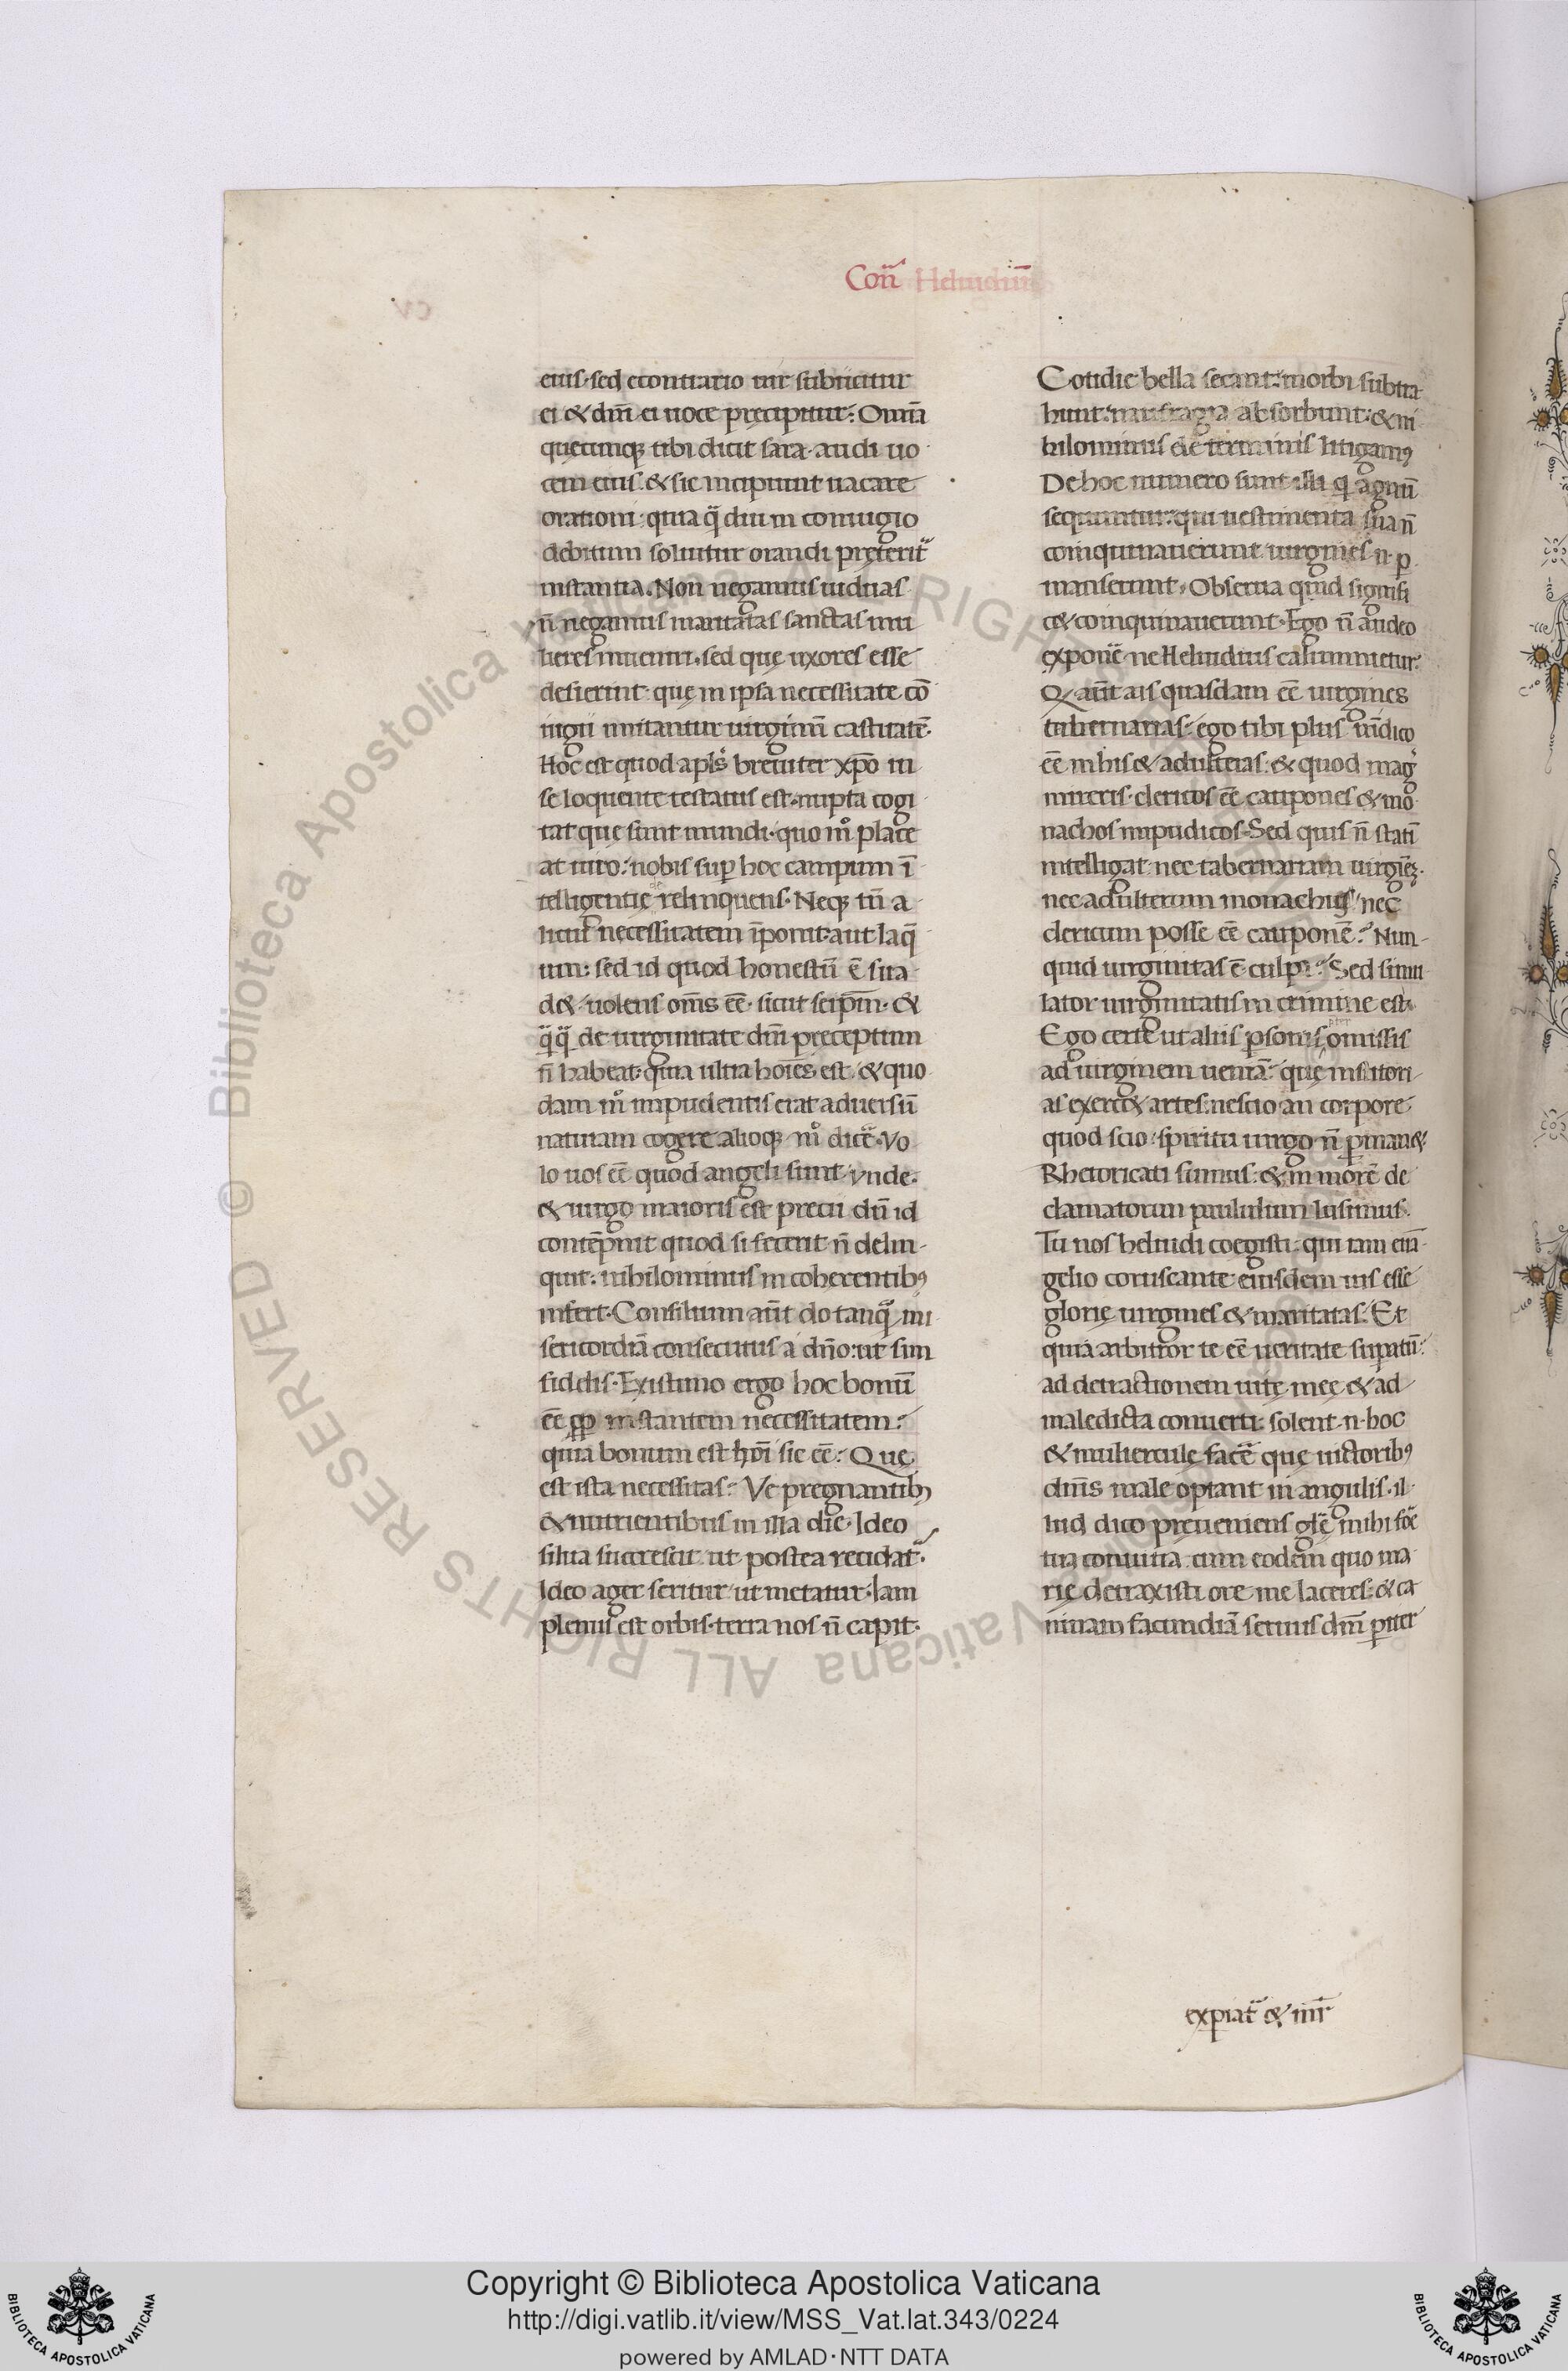 Con̄ Heluidiū
eius· sed econtrario uir subiicitur
ei & dn̄i ei uoce precipitur: Omīa
quęcunq; tibi dicit sara· audi uo
cem eius· & sic incipiunt uacare
orationi· quia q̄diu in coniugio
debitum soluitur orandi pręterit᷑
instantia. Non negamus uiduas
n̄ negamus maritatas sanctas mu
lieres inueniri· sed quę uxores esse
desierint· quę in ipsa necessitate cō
iugii imitantur uirginū castitatē·
Hoc est quod apl's breuiter xp̄o in
se loquente testatus est· nupta cogi
tat que sunt mundi· quo mͦ place
at uiro: nobis suꝑ hoc campum ī
telligentię relinquens· Neq; tn̄ a
licui necessitatem īponit· aut laq̄
um: sed id quod honestū ē sua
d& uolens om̄s eē· sicut seip̄m· &
q̄q̄ de uirginitate dn̄i preceptum
n̄ habeat· quia ultra hoīes est· & quo
dam mͦ impudentis erat aduersū
naturam cogere alioq; mͦ dic̄e· Vo
lo uos eē quod angeli sunt· vnde·
& uirgo maioris est precii dū id
contēpnit quod si fecerit n̄ delin
quit: nihilominus in coherentibꝰ
infert· Consilium aūt do tanq̄ mi
sericordiā consecutus a dn̄o: ut sim
fidelis· Existimo ergo hoc bonū
eē ꝓp instantem necessitatem:
quia bonum est hōi sic eē: Quę
est ista necessitas: Ve pregnantib;
& nutrientibus in illa die· Ideo
silua succrescit ut postea recidat᷑·
Ideo ager seritur ut metatur· Iam
plenus est orbis· terra nos n̄ capit·
Cotidie bella secant: morbi subtra
hunt: naufragia absorbunt: & ni
hilominus de terminis litigamꝰ
De hoc numero sunt illi q̄ agnū
sequuntur: qui uestimenta sua n̄
coinquinauerunt· uirgines n· ꝑ
manserunt· Obserua quid signifi
c& coinquinauerunt· Ego n̄ audeo
exponē· ne Heluidius calumnietur:
Q aūt ais quasdam eē uirgines
tabernarias· ego tibi plus īn dico
eē in his & adulteras: & quod mag
mireris· clericos eē caupones & mo
nachos impudicos· Sed quis n̄ statī
intelligat· nec tabernariam uirgīeꝫ·
nec adulterum monachuꝫ· nec
clericum posse eē cauponē: Nun
quid uirginitas ē culpę Sed simu
lator uirginitatis in crimine est·
Ego certe ut aliis ꝑsonis omissis
ad uirginem ueniā: quę institori
as exerc& artes: nescio an corpore·
quod scio: spiritu uirgo n̄ ꝑman&·
Rhetoricati sumus: & in morē de
clamatorum paululum lusimus·
Tu nos heluidi coegisti: qui iam euā
gelio coruscante eiusdem uis esse
glorię uirgines & maritatas: Et
quia arbitror te eē ueritate suꝑatū:
ad detractionem uitę meę & ad
maledicta conuerti: solent· n· hoc
& mulierculę facē que uictoribꝰ
dn̄is male optant in angulis· il
lud dico preueniens glę mihi foē
tua conuitia· cum eodem quo ma
rię detraxisti ore me laceres: & ca
ninam facundiā seruus dn̄i ꝑiter
expiat᷑ & mr̄
Copyright © Biblioteca Apostolica Vaticana
http://digi.vatlib.it/view/MSS_Vat.lat.343/0224
powered by AMLAD·NTT DATA